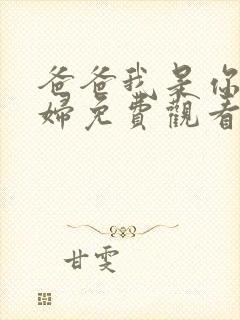 爸爸我呆你
婦免費觀看
甘雯